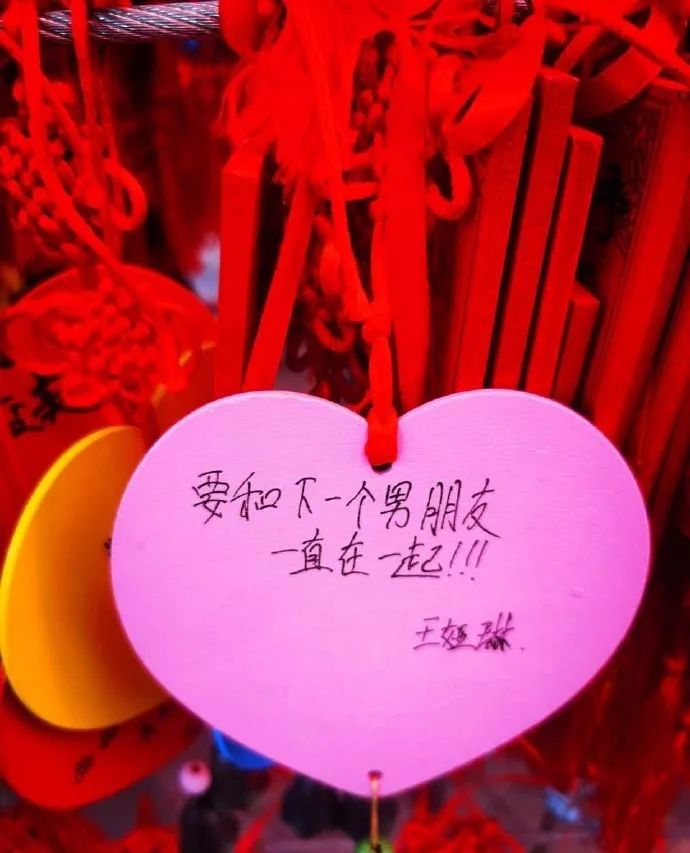 要和下一个男朋友
一直在一起!!!
王娅琳.